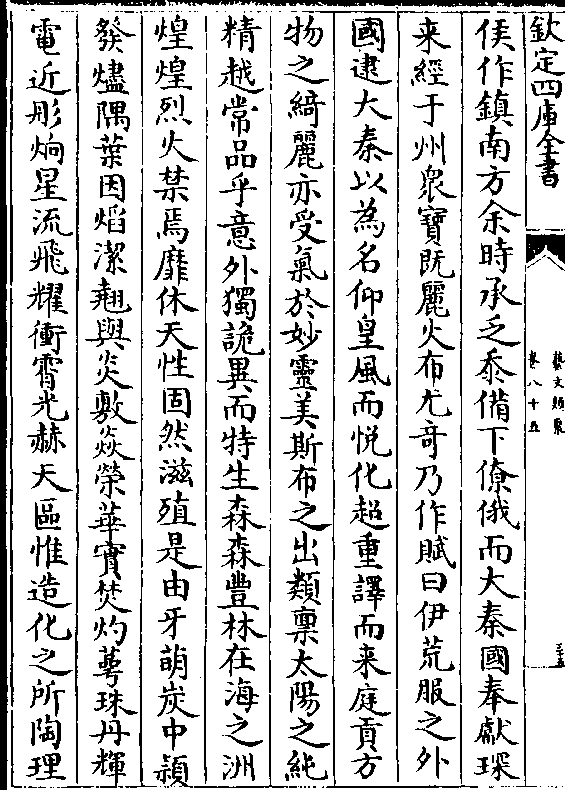 欽定四庫全書
藝文類聚
卷八十五
三十五
侯作鎮南方余時承乏忝備下僚俄而大秦國奉獻琛
来經于州衆寶既麗火布尤竒乃作賦曰伊荒服之外
國逮大秦以為名仰皇風而悦化超重譯而来庭貢方
物之綺麗亦受氣於妙靈美斯布之出類禀太陽之純
精越常品乎意外獨詭異而特生森森豐林在海之洲
煌煌烈火禁焉靡休天性固然滋殖是由牙萌炭中頴
發燼隅葉因熖潔翹與炎敷焱榮華實焚灼蕚珠丹輝
電近彤炯星流飛耀衝霄光赫天區惟造化之所陶理